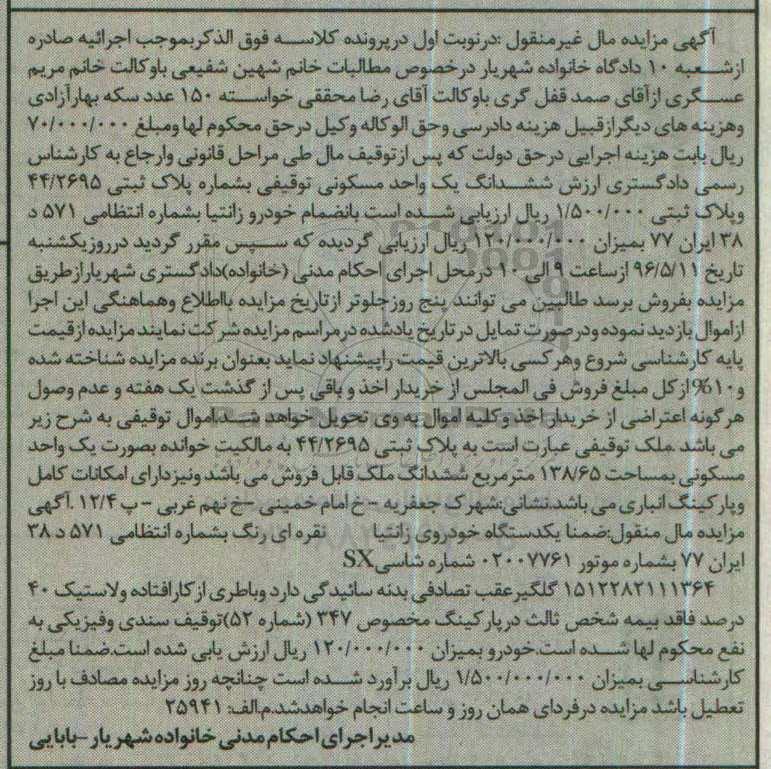 آگهی مزایده مال غیرمنقول :درنوبت اول درپرونده کلاسه فوق الذکربموجب اجرائیه صادره
ازشعبه ۱۰ دادگاه خانواده شهریار درخصوص مطالبات خانم شهین شفیعی باوکالت خانم مریم
عسگری ازآقای صمد قفل گری باوکالت آقای رضا محققی خواسته ۱۵۰ عدد سکه بهارآزادی
وهزینه های دیگرازقبیل هزینه دادرسی وحق الوکاله وکیل درحق محکوم لها ومبلغ ۷۰/۰۰۰/۰۰۰
ریال بابت هزینه اجرایی درحق دولت که پس ازتوقیف مال طی مراحل قانونی وارجاع به کارشناس
رسمی دادگستری ارزش ششدانگ یک واحد مسکونی توقیفی بشماره پلاک ثبتی ۴۴/۲۶۹۵
وپلاک ثبتی ۱/۵۰۰/۰۰۰ ریال ارزیابی شده است بانضمام خودرو زانتیا بشماره انتظامی ۵۷۱ د
۳۸ ایران ۷۷ بمیزان ۱۲۰/۰۰۰/۰۰۰ ریال ارزیابی گردیده که سپس مقرر گردید درروزیکشنبه
تاریخ ۹۶/۵/۱۱ ازساعت ۹ الی ۱۰ درمحل اجرای احکام مدنی (خانواده)دادگستری شهریارازطریق
مزایده بفروش برسد طالبین می توانند پنج روزجلوتر ازتاریخ مزایده بااطلاع وهماهنگی این اجرا
ازاموال بازدید نموده ودرصورت تمایل درتاریخ یادشده درمراسم مزایده شرکت نمایند مزایده ازقیمت
پایه کارشناسی شروع وهرکسی بالاترین قیمت راپیشنهاد نماید بعنوان برنده مزایده شناخته شده
و۱۰%ازکل مبلغ فروش فی المجلس از خریدار اخذ و باقی پس از گذشت یک هفته و عدم وصول
هرگونه اعتراضی از خریدار اخذ وکلیه اموال به وی تحویل خواهد شد.اموال توقیفی به شرح زیر
می باشد .ملک توقیفی عبارت است به پلاک ثبتی ۴۴/۲۶۹۵ به مالکیت خوانده بصورت یک واحد
مسکونی بمساحت ۱۳۸/۶۵ مترمربع ششدانگ ملک قابل فروش می باشد ونیزدارای امکانات کامل
وپارکینگ انباری می باشد.نشانی:شهرک جعفریه -خ امام خمینی -خ نهم غربی - پ ۱۲/۴ .آگهی
مزایده مال منقول:ضمنا یکدستگاه خودروی زانتیا نقره ای رنگ بشماره انتظامی ۵۷۱ د ۳۸
ایران ۷۷ بشماره موتور ۰۲۰۰۷۷۶۱ شماره شاسیSX
۱۵۱۲۲۸۲۱۱۱۳۶۴ گلگیرعقب تصادفی بدنه سائیدگی دارد وباطری ازکارافتاده ولاستیک ۴۰
درصد فاقد بیمه شخص ثالث درپارکینگ مخصوص ۳۴۷ (شماره ۵۲)توقیف سندی وفیزیکی به
نفع محکوم لها شده است.خودرو بمیزان ۱۲۰/۰۰۰/۰۰۰ ریال ارزش یابی شده است.ضمنا مبلغ
کارشناسی بمیزان ۱/۵۰۰/۰۰۰/۰۰۰ ریال برآورد شده است چنانچه روز مزایده مصادف با روز
تعطیل باشد مزایده درفردای همان روز و ساعت انجام خواهدشد.م.الف: ۲۵۹۴۱
مدیراجرای احکام مدنی خانواده شهریار-بابایی